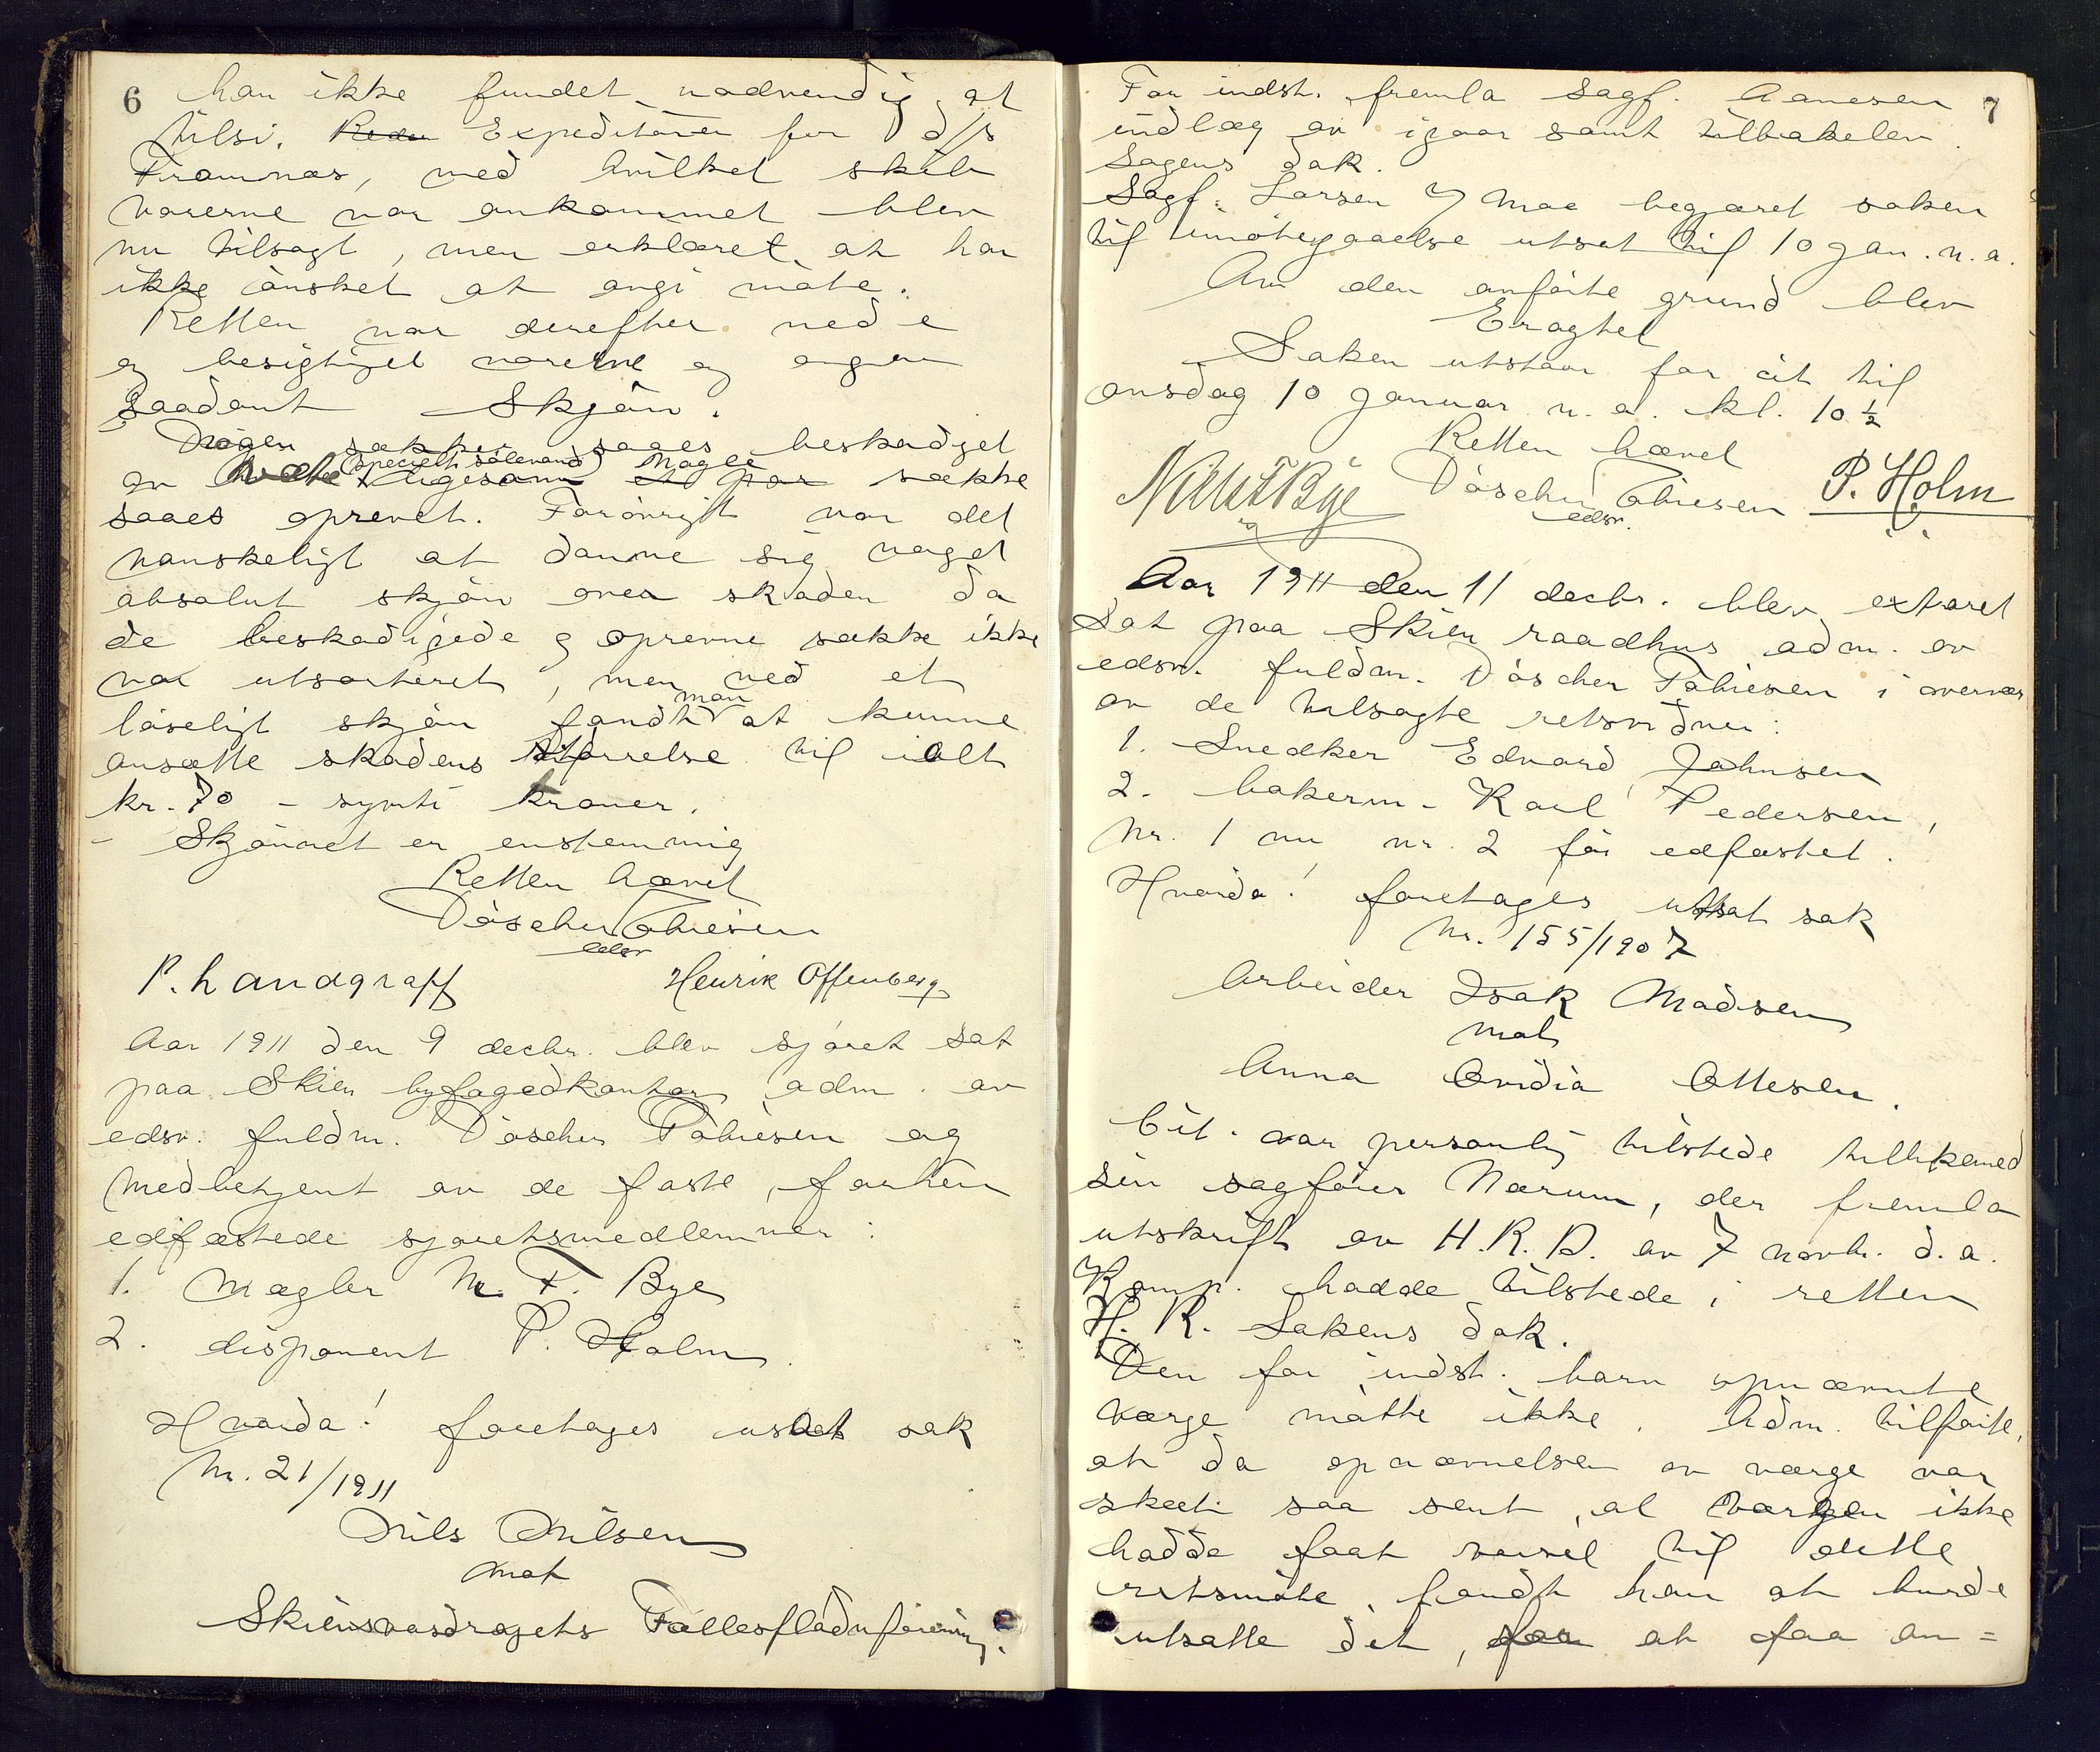 6
han ikke fundet nødvendig at
tilsi. Reder Expeditøren for d/s
Framnæs, med hvilket skib
varerne var ankommet blev
nu tilsagt, men erklæret at han
ikke ønsket at angi møte.
Retten var derefter nede
og besigtiget varerne og avgav
saadant Skjøn.
Nogen sækker saaes beskadiget
av væte (specielt sjøvand) Ligesom Nogle et par sække
saaes oprevet. Forøvrigt var det
vanskeligt at danne sig noget
absolut skjøn over skaden da
de beskadigede og oprevne sække ikke
var utsorteret, men ved et
løseligt skjøn fandt man at kunne
ansætte skadens størrelse til ialt
kr. 70 - sytti kroner.
- Skjønnet er enstemmig
Retten hævet
Döscher Tobiesen
edsv
P. Landgraff Henrik Offenberg
Aar 1911 den 9 decbr. blev sjøret sat
paa Skien byfogedkontor adm. av
edsv. fuldm. Döscher Tobiesen og
medbetjent av de faste, forhen
edfæstede sjøretsmedlemmer:
1. Mægler N. F. Bye
2. disponent P. Holm.
Hvorda! foretages utsat sak
Nr. 21/1911
Nils Nilsen
mot
Skiensvasdragets Fællesflødnforening.
7
For indst. fremla Sagf. Aanesen
indlæg av igaar samt tilbakelev.
Sagens dok.
Sagf. Larsen Moe begjæret saken
til imøtegaaelse utsat til 10 jan. n. a.
Av den anførte grund blev
Eragtet
Saken utstaar for at til
onsdag 10 januar n. a. kl. 10 ½
Retten hævet
Nils F Bye Döscher Tobiesen P. Holm
edsv.
Aar 1911 den 11 decbr. blev extraret
sat paa Skien raadhus adm. av
edsv. fuldm. Döscher Tobiesen i overvær
av de tilsagte retsvidner:
1. Snedker Edvard Johnsen
2. bakerm. Karl Pedersen,
Nr. 1 nu nr. 2 før edfæstet.
Hvorda! foretages utsat sak
Nr. 155/1907
Arbeider Isak Madsen
mot
Anna Ovidia Ottesen.
Cit. var personlig tilstede tillikemed
sin sagfører Nærum, der fremla
utskrift av H. R. D. av 7 novbr. d. a.
Komp. hadde tilstede i retten
H. R. Sakens dok.
Den for indst. barn opnævnte
værge møtte ikke. Adm. tilførte,
at da opnævnelsen av værge var
skeet saa sent, at værgen ikke
hadde faat varsel til dette
retsmøte, fandt han at burde
utsætte det, for at faa an=